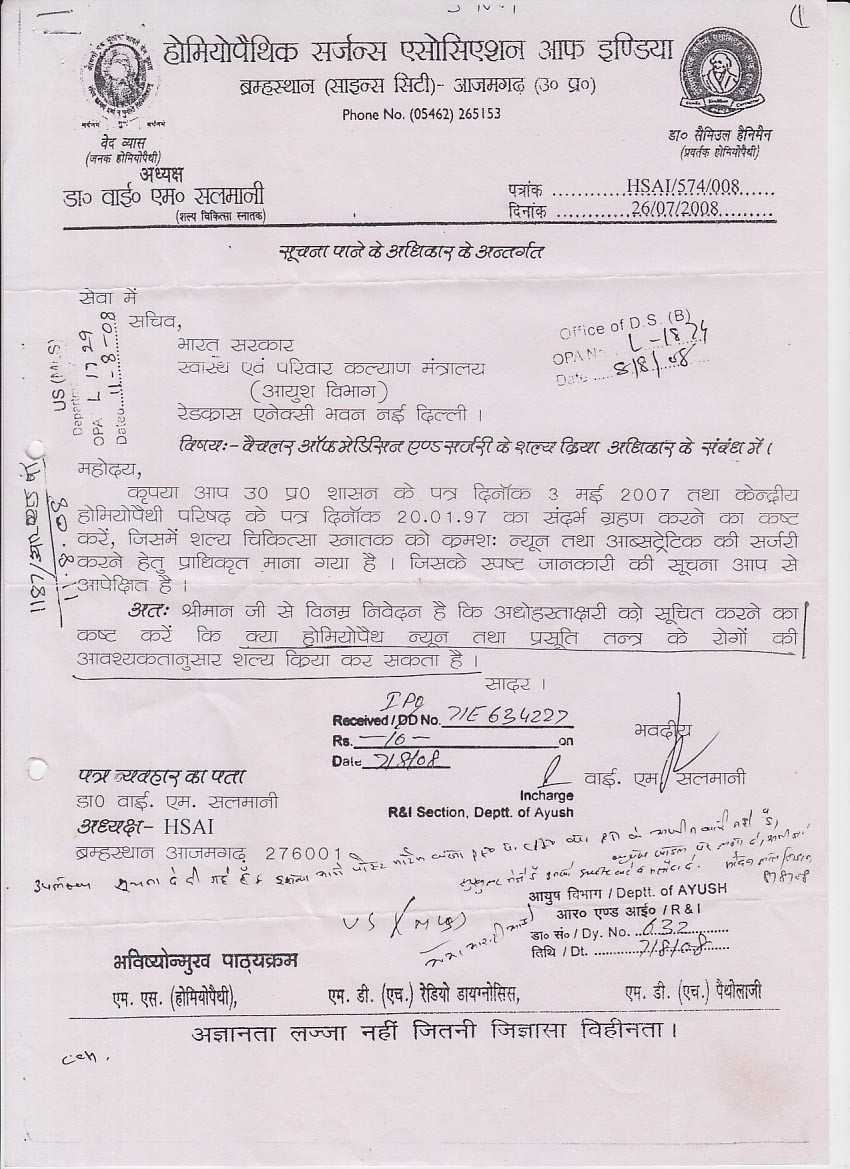 होमियोपैथिक सर्जन्स एसोसिएशन आफ इण्डिया
ब्रम्हस्थान (साइन्स सिटी)- आजमगढ़ (उ० प्र०)
Phone No. (05462) 265153
वेद व्यास
(जनक होमियोपैथी)
डा० सैमिउल हैनिमैन
(प्रवर्तक होमियोपैथी)
अध्यक्ष
डा० वाई० एम० सलमानी
(शल्य चिकित्सा स्नातक)
पत्रांक ............HSAI/574/008......
दिनांक ............26/07/2008.........
सूचना पाने के अधिकार के अन्तर्गत
सेवा में
सचिव,
भारत सरकार
स्वास्थ एवं परिवार कल्याण मंत्रालय
(आयुश विभाग)
रेडकास एनेक्सी भवन नई दिल्ली ।
Office of D.S. (B)
OPA No. L-1874
Date ..... 8/8/08
US
OPA L 1729
Dated.....11-8-08
विषयः- बैचलर ऑफ मेडिसिन एण्ड सर्जरी के शल्य क्रिया अधिकार के संबंध में।
महोदय,
कृपया आप उ० प्र० शासन के पत्र दिनॉक 3 मई 2007 तथा केन्द्रीय
होमियोपैथी परिषद के पत्र दिनॉक 20.01.97 का संदर्भ ग्रहण करने का कष्ट
करें, जिसमें शल्य चिकित्सा स्नातक को कमशः न्यून तथा आब्सट्रेटिक की सर्जरी
करने हेतु प्राधिकृत माना गया है । जिसके स्पष्ट जानकारी की सूचना आप से
आपेक्षित है ।
अतः श्रीमान जी से विनम्र निवेदन है कि अधोहस्ताक्षरी को सूचित करने का
कष्ट करें कि क्या होमियोपैथ न्यून तथा प्रसूति तन्त्र के रोगों की
आवश्यकतानुसार शल्य किया कर सकता है ।
सादर ।
IPO
Received / DD No. 71E 634227
Rs. —10— on
Date 7/8/08
Incharge
R&I Section, Deptt. of Ayush
भवदीय
वाई. एम. सलमानी
पत्र व्यवहार का पता
डा0 वाई. एम. सलमानी
अध्यक्ष- HSAI
ब्रम्हस्थान आजमगढ़ 276001
आयुष विभाग / Deptt. of AYUSH
आर० एण्ड आई० / R & I
डा० सं० / Dy. No. ..632
तिथि / Dt. ............7/8/08
भविष्योन्मुख पाठ्यक्रम
एम. एस. (होमियोपैथी), एम. डी. (एच.) रेडियो डायग्नोसिस, एम. डी. (एच.) पैथोलाजी
अज्ञानता लज्जा नहीं जितनी जिज्ञासा विहीनता ।